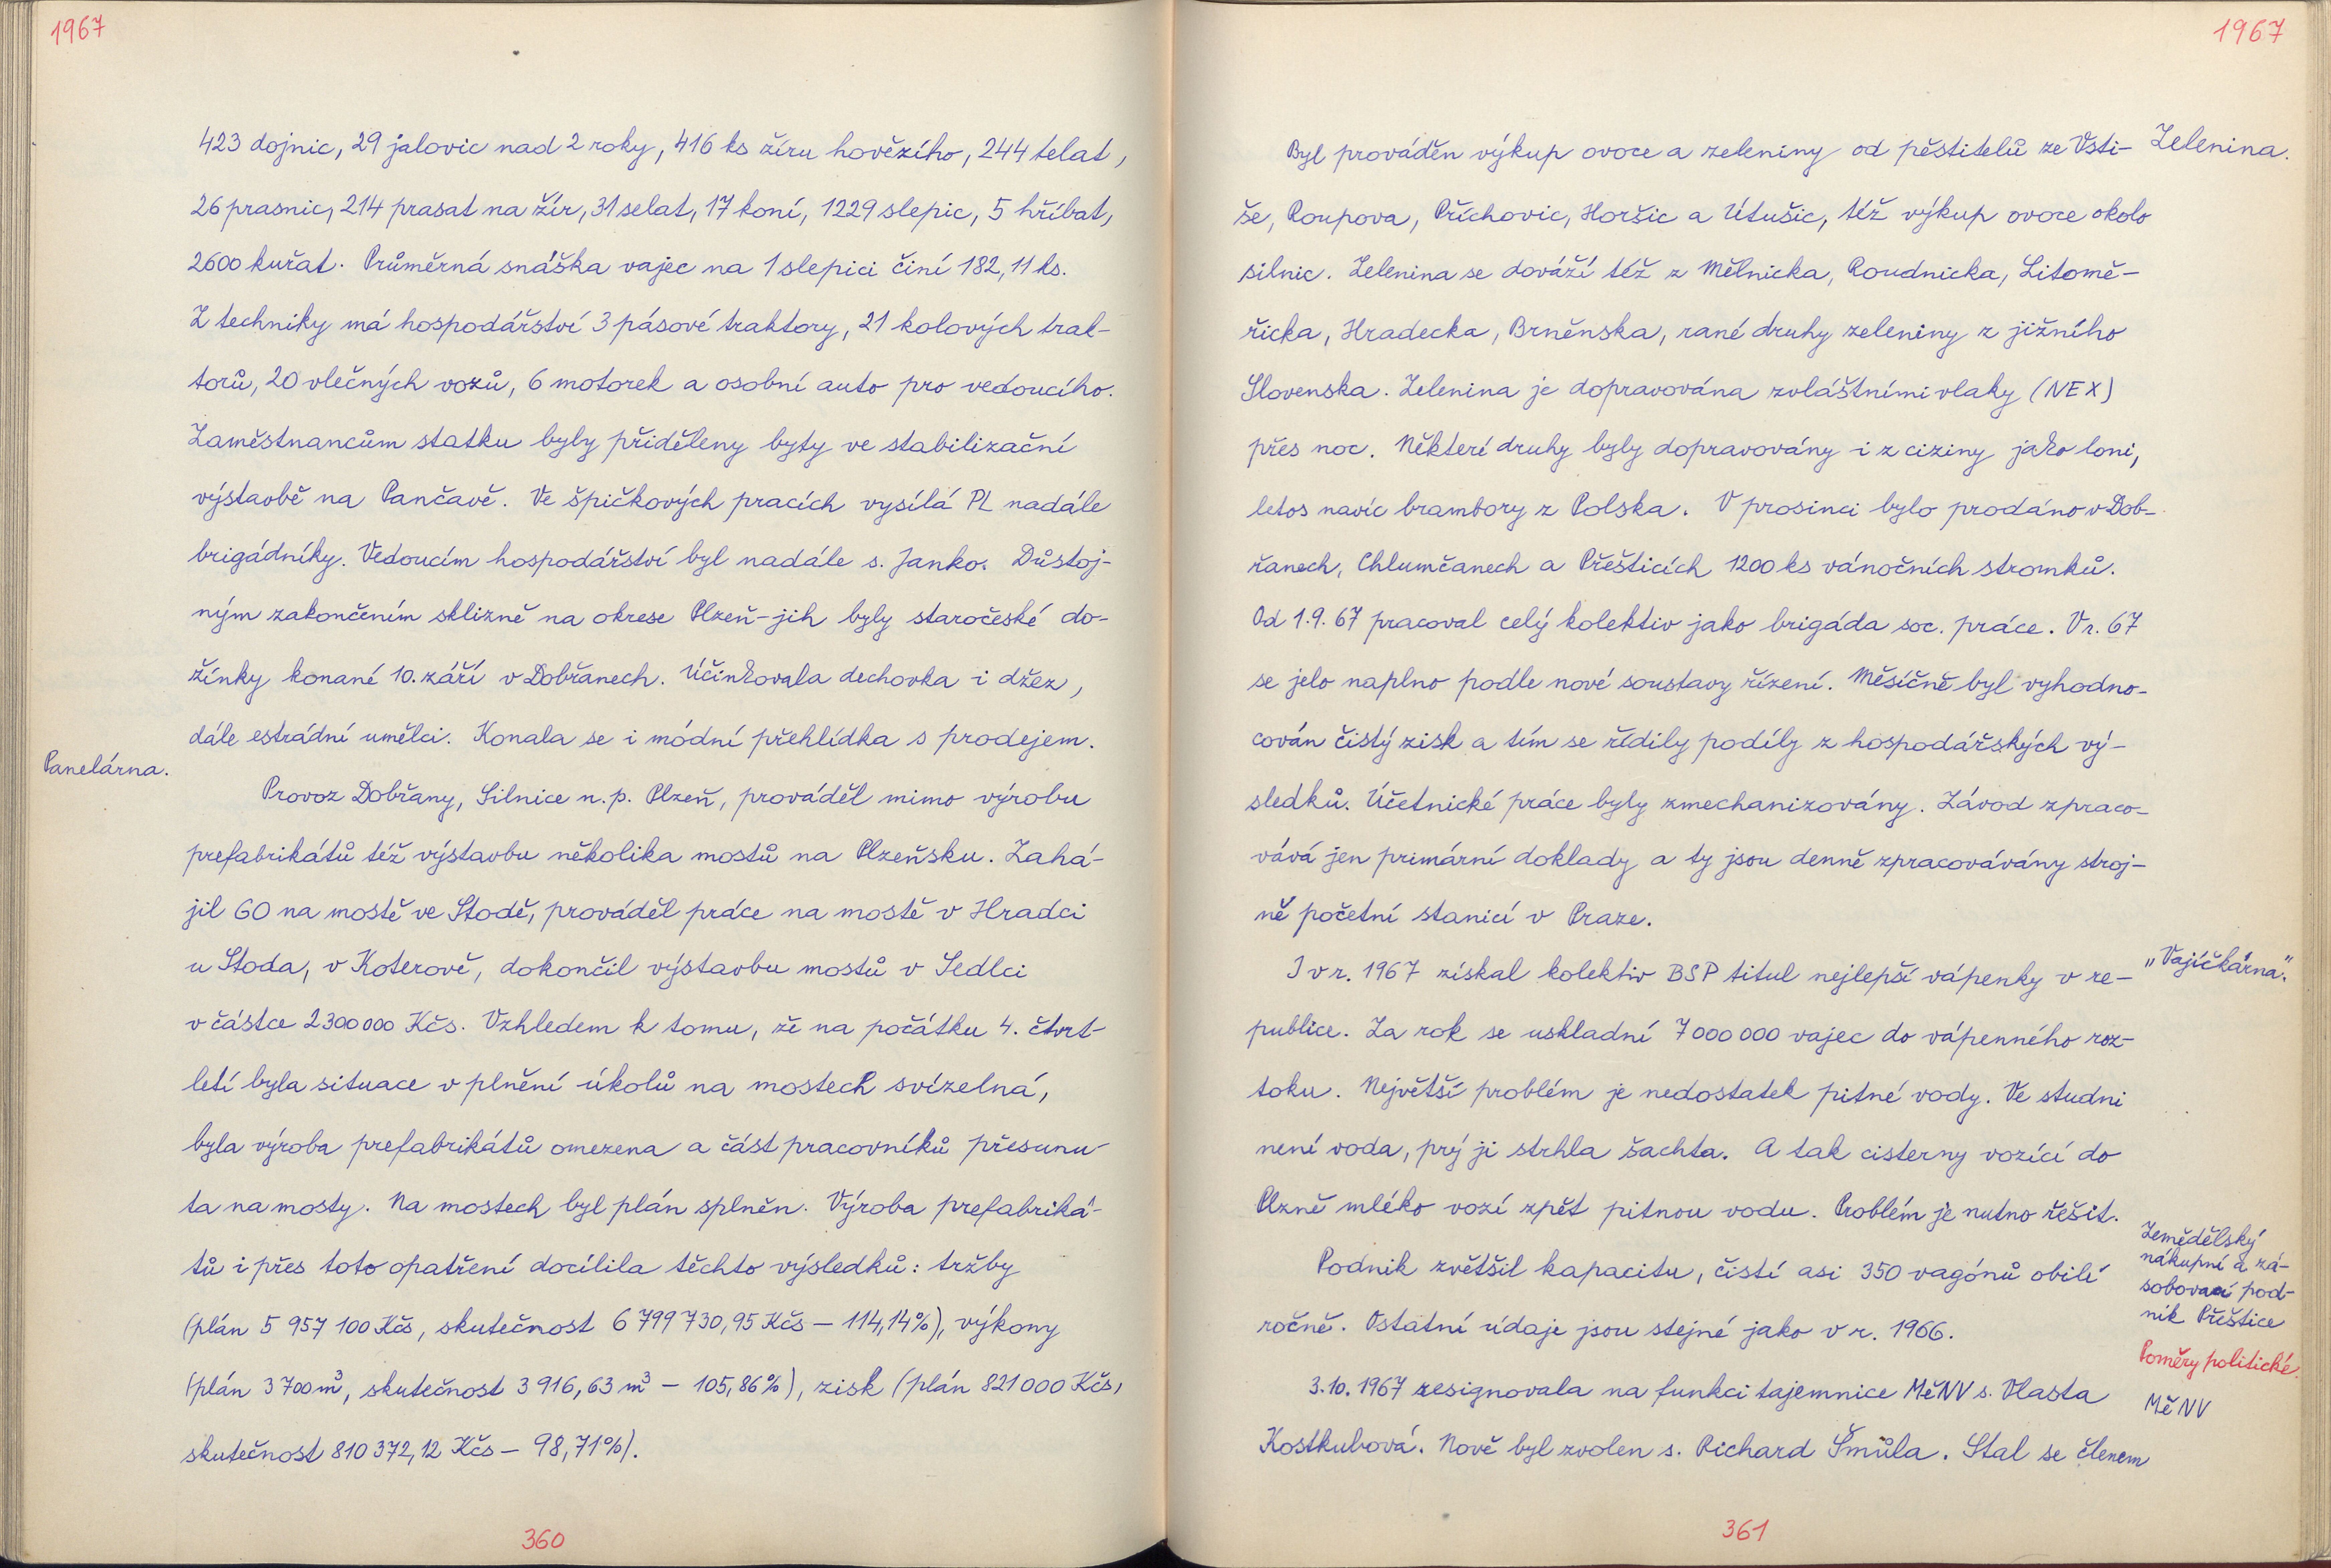 1967
423 dojnic, 29 jalovic nad 2 roky, 416 ks žíru hovězího, 244 telat,
26 prasnic, 214 prasat na žír, 31 selat, 17 koní, 1229 slepic, 5 hříbat,
2600 kuřat. Průměrná snáška vajec na 1 slepici činí 182,11 ks.
Z techniky má hospodářství 3 pásové traktory, 21 kolových trak-
torů, 20 vlečných vozů, 6 motorek a osobní auto pro vedoucího.
Zaměstnancům statku byly přiděleny byty ve stabilizační
výstavbě na Pančavě. Ve špičkových pracích vysílá PL nadále
brigádníky. Vedoucím hospodářství byl nadále s. Janko. Důstoj-
ným zakončením sklizně na okrese Plzeň-jih byly staročeské do-
žínky konané 10. září v Dobřanech. Účinkovala dechovka i džez,
dále estrádní umělci. Konala se i módní přehlídka s prodejem.
Panelárna.
Provoz Dobřany, Silnice n.p. Plzeň, prováděl mimo výrobu
prefabrikátů též výstavbu několika mostů na Plzeňsku. Zahá-
jil GO na mostě ve Stodě, prováděl práce na mostě v Hradci
u Stoda, v Koterově, dokončil výstavbu mostů v Sedlci
v částce 2300000 Kčs. Vzhledem k tomu, že na počátku 4. čtvrt-
letí byla situace v plnění úkolů na mostech svízelná,
byla výroba prefabrikátů omezena a část pracovníků přesunu-
ta na mosty. Na mostech byl plán splněn. Výroba prefabriká-
tů i přes toto opatření docílila těchto výsledků: tržby
(plán 5 957 100 Kčs, skutečnost 6 799 730,95 Kčs – 114,14%), výkony
(plán 3 700 m³, skutečnost 3 916,63 m³ – 105,86%), zisk (plán 821 000 Kčs,
skutečnost 810 372,12 Kčs – 98,71%).
360
1967
Zelenina.
Byl prováděn výkup ovoce a zeleniny od pěstitelů ze Vsti-
še, Roupova, Příchovic, Horšic a Útušic, též výkup ovoce okolo
silnic. Zelenina se dováží též z Mělnicka, Roudnicka, Litomě-
řicka, Hradecka, Brněnska, rané druhy zeleniny z jižního
Slovenska. Zelenina je dopravována zvláštními vlaky (NEX)
přes noc. Některí druhy byly dopravovány i z ciziny jako loni,
letos navíc brambory z Polska. V prosinci bylo prodáno v Dob-
řanech, Chlumčanech a Přešticích 1200 ks vánočních stromků.
Od 1.9.67 pracoval celý kolektiv jako brigáda soc. práce. V r. 67
se jelo naplno podle nové soustavy řízení. Měsíčně byl vyhodno-
cován čistý zisk a tím se řídily podíly z hospodářských vý-
sledků. Účetnické práce byly zmechanizovány. Závod zpraco-
vává jen primární doklady a ty jsou denně zpracovávány stroj-
ně početní stanicí v Praze.
"Vajíčkárna".
I v r. 1967 získal kolektiv BSP titul nejlepší vápenky v re-
publice. Za rok se uskladní 7 000 000 vajec do vápenného roz-
toku. Největší problém je nedostatek pitné vody. Ve studni
není voda, prý ji strhla šachta. A tak cisterny vozící do
Plzně mléko vozí zpět pitnou vodu. Problém je nutno řešit.
Zemědělský
nákupní a zá-
sobovací pod-
nik Přeštice
Podnik zvětšil kapacitu, čistí asi 350 vagónů obilí
ročně. Ostatní údaje jsou stejné jako v r. 1966.
Poměry politické.
MěNV
3.10.1967 resignovala na funkci tajemnice MěNV s. Vlasta
Kostkubová. Nově byl zvolen s. Richard Šmůla. Stal se členem
361